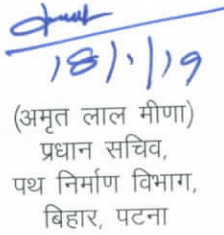 18/1/19
(अमृत लाल मीणा)
प्रधान सचिव,
पथ निर्माण विभाग,
बिहार, पटना